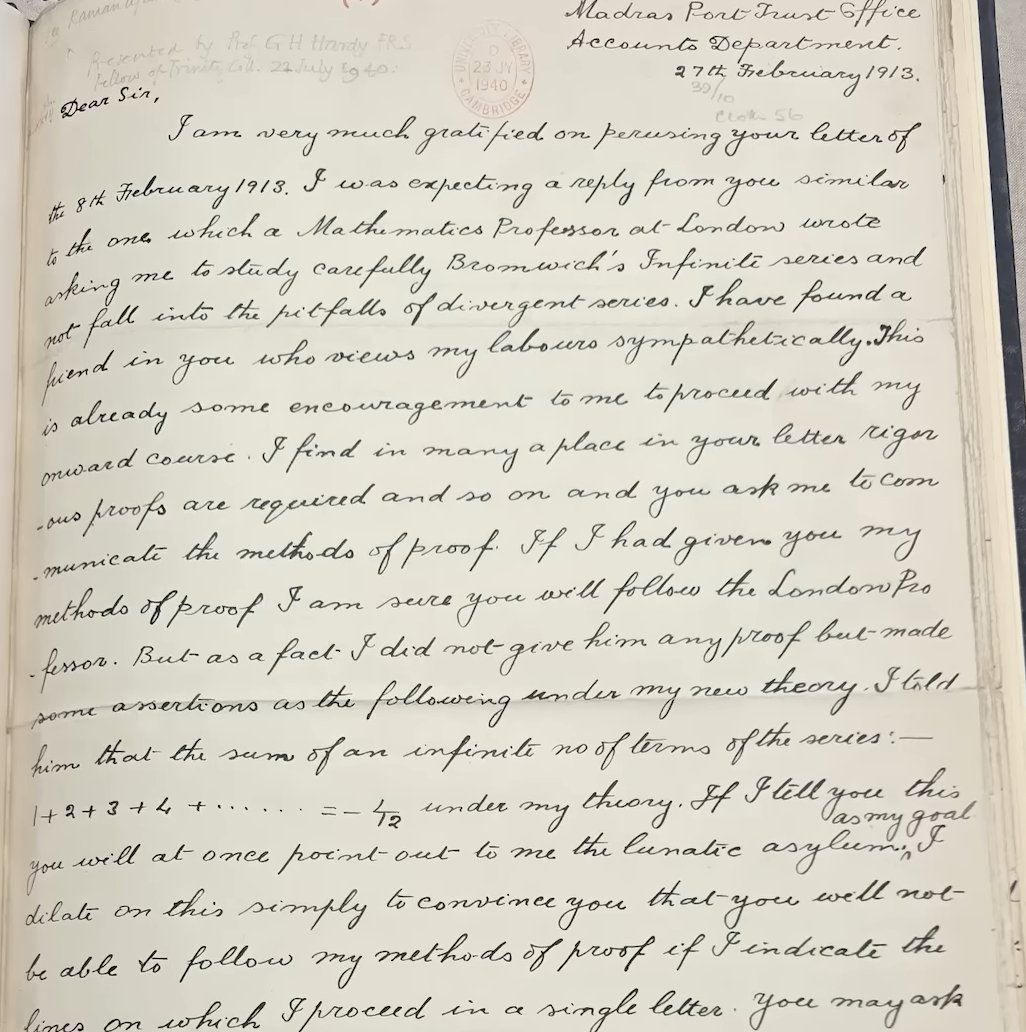 Ramanujan
Presented by Prof. G H Hardy FRS
Fellow of Trinity Coll. 22 July 1940.
UNIVERSITY LIBRARY
D
23 JY
1940
CAMBRIDGE
Madras Port Trust Office
Accounts Department.
27th February 1913.
39/10
Cloth 56
Dear Sir,
I am very much gratified on perusing your letter of
the 8th February 1913. I was expecting a reply from you similar
to the one which a Mathematics Professor at London wrote
asking me to study carefully Bromwich's Infinite series and
not fall into the pitfalls of divergent series. I have found a
friend in you who views my labours sympathetically. This
is already some encouragement to me to proceed with my
onward course. I find in many a place in your letter rigor
-ous proofs are required and so on and you ask me to com
-municate the methods of proof. If I had given you my
methods of proof I am sure you will follow the London Pro
-fessor. But as a fact I did not give him any proof but made
some assertions as the following under my new theory. I told
him that the sum of an infinite no of terms of the series:—
1+2+3+4+ ...... = -1/12 under my theory. If I tell you this
as my goal
you will at once point out to me the lunatic asylum.^ I
dilate on this simply to convince you that you will not
be able to follow my methods of proof if I indicate the
lines on which I proceed in a single letter. You may ask